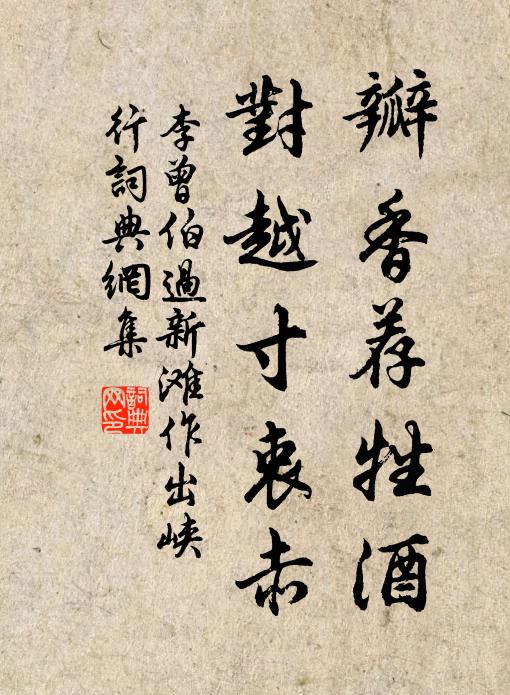 瓣香荐牲酒
對越寸衷赤
李曾伯過新滩作出峽
行詞典網集
詞典网印